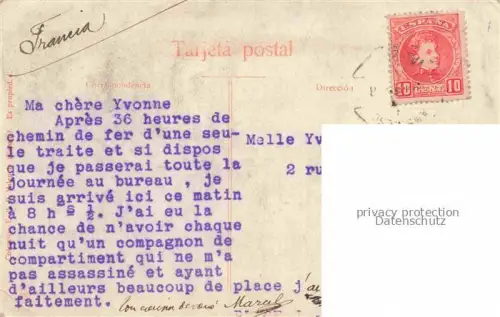 Francia
Tarjeta postal
Correspondencia
Dirección
Es propiedad
ESPAÑA
10 10
Ma chère Yvonne
Après 36 heures de
chemin de fer d'une seu-
le traite et si dispos
que je passerai toute la
journée au bureau , je
suis arrivé ici ce matin
à 8 h s ½. J'ai eu la
chance de n'avoir chaque
nuit qu'un compagnon de
compartiment qui ne m'a
pas assassiné et ayant
d'ailleurs beaucoup de place j'
faitement.
Marcel
Melle Yv
2 ru
privacy protection
Datenschutz